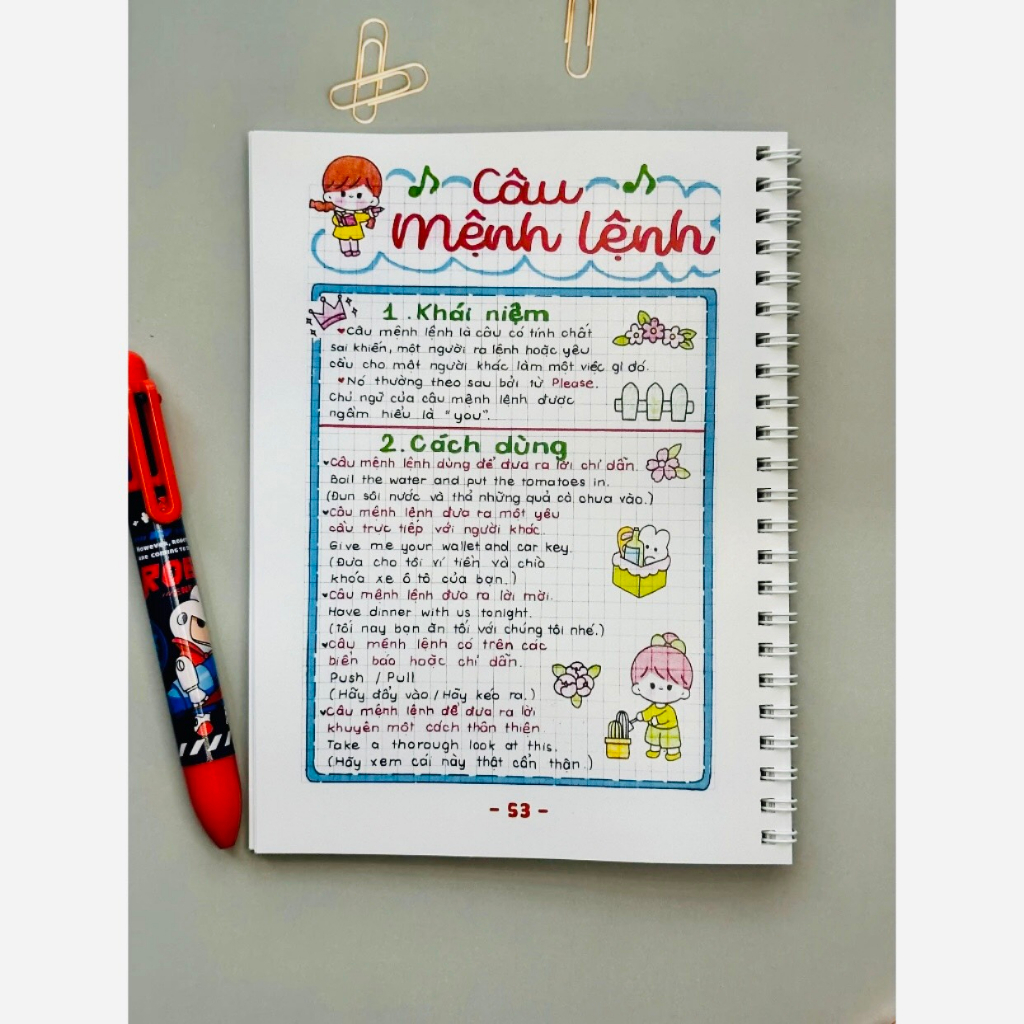 Câu
Mệnh lệnh
1. Khái niệm
Câu mệnh lệnh là câu có tính chất
sai khiến, một người ra lệnh hoặc yêu
cầu cho một người khác làm một việc gì đó.
Nó thường theo sau bởi từ Please.
Chủ ngữ của câu mệnh lệnh được
ngầm hiểu là "you".
2. Cách dùng
Câu mệnh lệnh dùng để đưa ra lời chỉ dẫn.
Boil the water and put the tomatoes in.
(Đun sôi nước và thả những quả cà chua vào.)
Câu mệnh lệnh đưa ra một yêu
cầu trực tiếp với người khác.
Give me your wallet and car key.
(Đưa cho tôi ví tiền và chìa
khóa xe ô tô của bạn.)
Câu mệnh lệnh đưa ra lời mời.
Have dinner with us tonight.
(Tối nay bạn ăn tối với chúng tôi nhé.)
Câu mệnh lệnh có trên các
biển báo hoặc chỉ dẫn.
Push / Pull
(Hãy đẩy vào / Hãy kéo ra.)
Câu mệnh lệnh để đưa ra lời
khuyên một cách thân thiện.
Take a thorough look at this.
(Hãy xem cái này thật cẩn thận.)
- 53 -